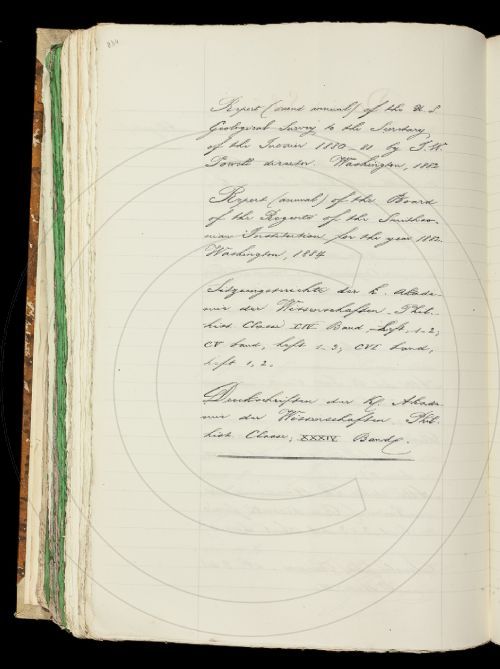 234
Report (second annual) of the U. S.
Geological Survey to the Secretary
of the Interior 1880-81 by J. W.
Powell director. Washington, 1882
Report (annual) of the Board
of the Regents of the Smithso-
nian Institution for the year 1882.
Washington, 1884
Sitzungsberichte der k. Akade-
mie der Wissenschaften. Phil.-
hist. Classe CIV Band, heft. 1-2,
CV band, heft 1-2, CVI band,
heft 1, 2.
Denkschriften der K. Akade
mie der Wissenschaften Phil.
hist. Classe, XXXIV Band.